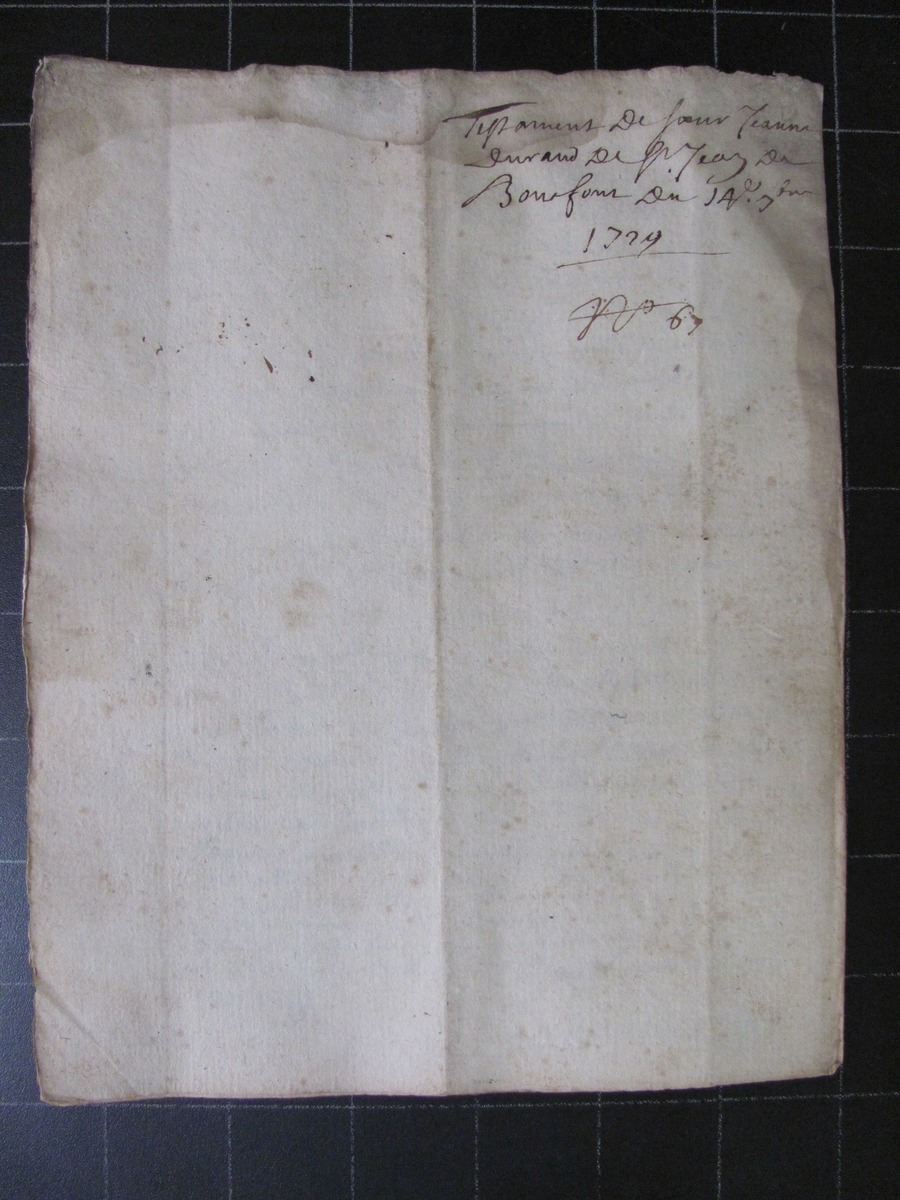 Testament de sœur Jeanne
durand de St. Jean de
Bonnefont du 14e. 7bre
1729
No 67